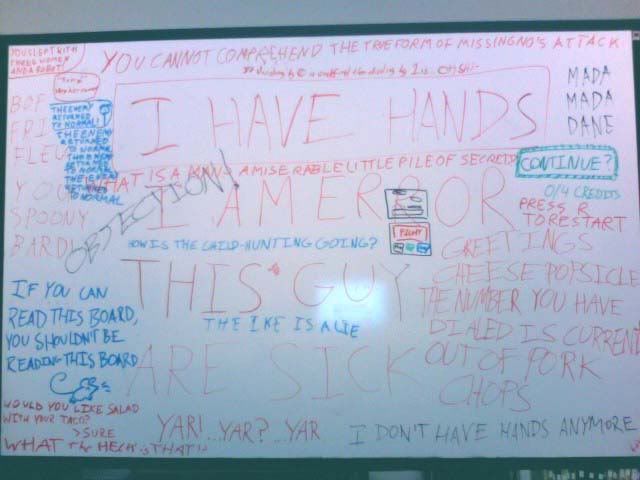 YOU SLEPT WITH
THREE WOMEN
AND A ROBOT!
YOU CANNOT COMPREHEND THE TRUE FORM OF MISSINGNO'S ATTACK
dividing by 0 is
dividing by 1 is OH SHI-
MADA
MADA
DANE
I HAVE HANDS
THE ENEMY
RETURNED
TO NORMAL!
THE ENEMY
RETURNED
TO NORMAL
THE ENEMY
RETURNED
TO NORMAL
THE ENEMY
RETURNED
TO NORMAL
WHAT IS A MAN? A MISERABLE LITTLE PILE OF SECRETS
CONTINUE?
0/4 CREDITS
PRESS R
TO RESTART
YOU
SPOONY
BARD!
OBJECTION!
I AM ERROR
FIGHT
HOW IS THE CHILD-HUNTING GOING?
THIS GUY
ARE SICK
THE IKE IS A LIE
GREETINGS
CHEESE POPSICLE
THE NUMBER YOU HAVE
DIALED IS CURRENT
OUT OF PORK
CHOPS
IF YOU CAN
READ THIS BOARD,
YOU SHOULDN'T BE
READING THIS BOARD
WOULD YOU LIKE SALAD
WITH YOUR TACO?
>SURE
WHAT THE HECK IS THAT!
YAR! ...YAR? ...YAR
I DON'T HAVE HANDS ANYMORE